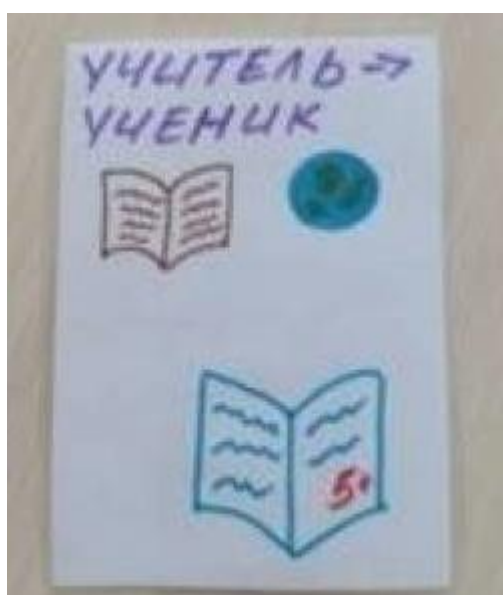 УЧИТЕЛЬ →
УЧЕНИК
5+